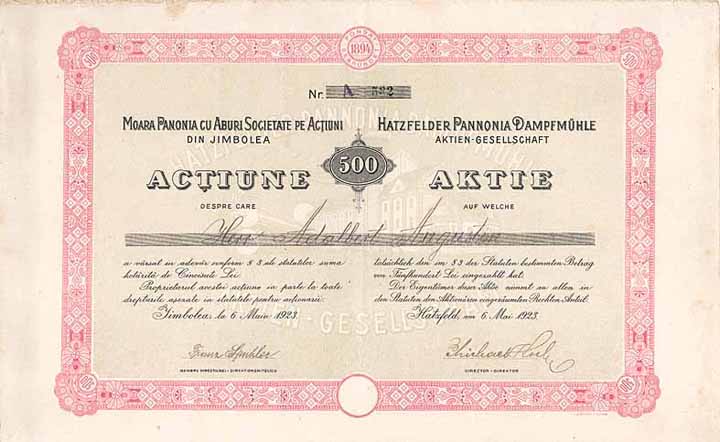 FONDAT
1894
500
500
Nr. A 532
MOARA PANONIA CU ABURI SOCIETATE PE ACȚIUNI
DIN JIMBOLEA
ACȚIUNE
DESPRE CARE
500
HATZFELDER PANNONIA DAMPFMÜHLE
AKTIEN-GESELLSCHAFT
AKTIE
AUF WELCHE
Herr Adalbert
a vărsat in adevăr conform § 3 ale statutelor suma
hotărîtă de Cincisute Lei.
Proprietarul acestei acțiuni ia parte la toate
drepturile așezate in statutele pentru acționarii.
Jimbolea, la 6 Maiu 1923.
tatsächlich den im §3 der Statuten bestimmten Betrag
von Fünfhundert Lei eingezahlt hat.
Der Eigentümer dieser Aktie nimmt an allen in
den Statuten den Aktionären eingeräumten Rechten Anteil.
Hatzfeld, am 6 Mai 1923.
GESELLS
Franz
MEMBRU DIRECȚIUNEI - DIREKTIONSMITGLIED
DIRECTOR - DIREKTOR
500
500